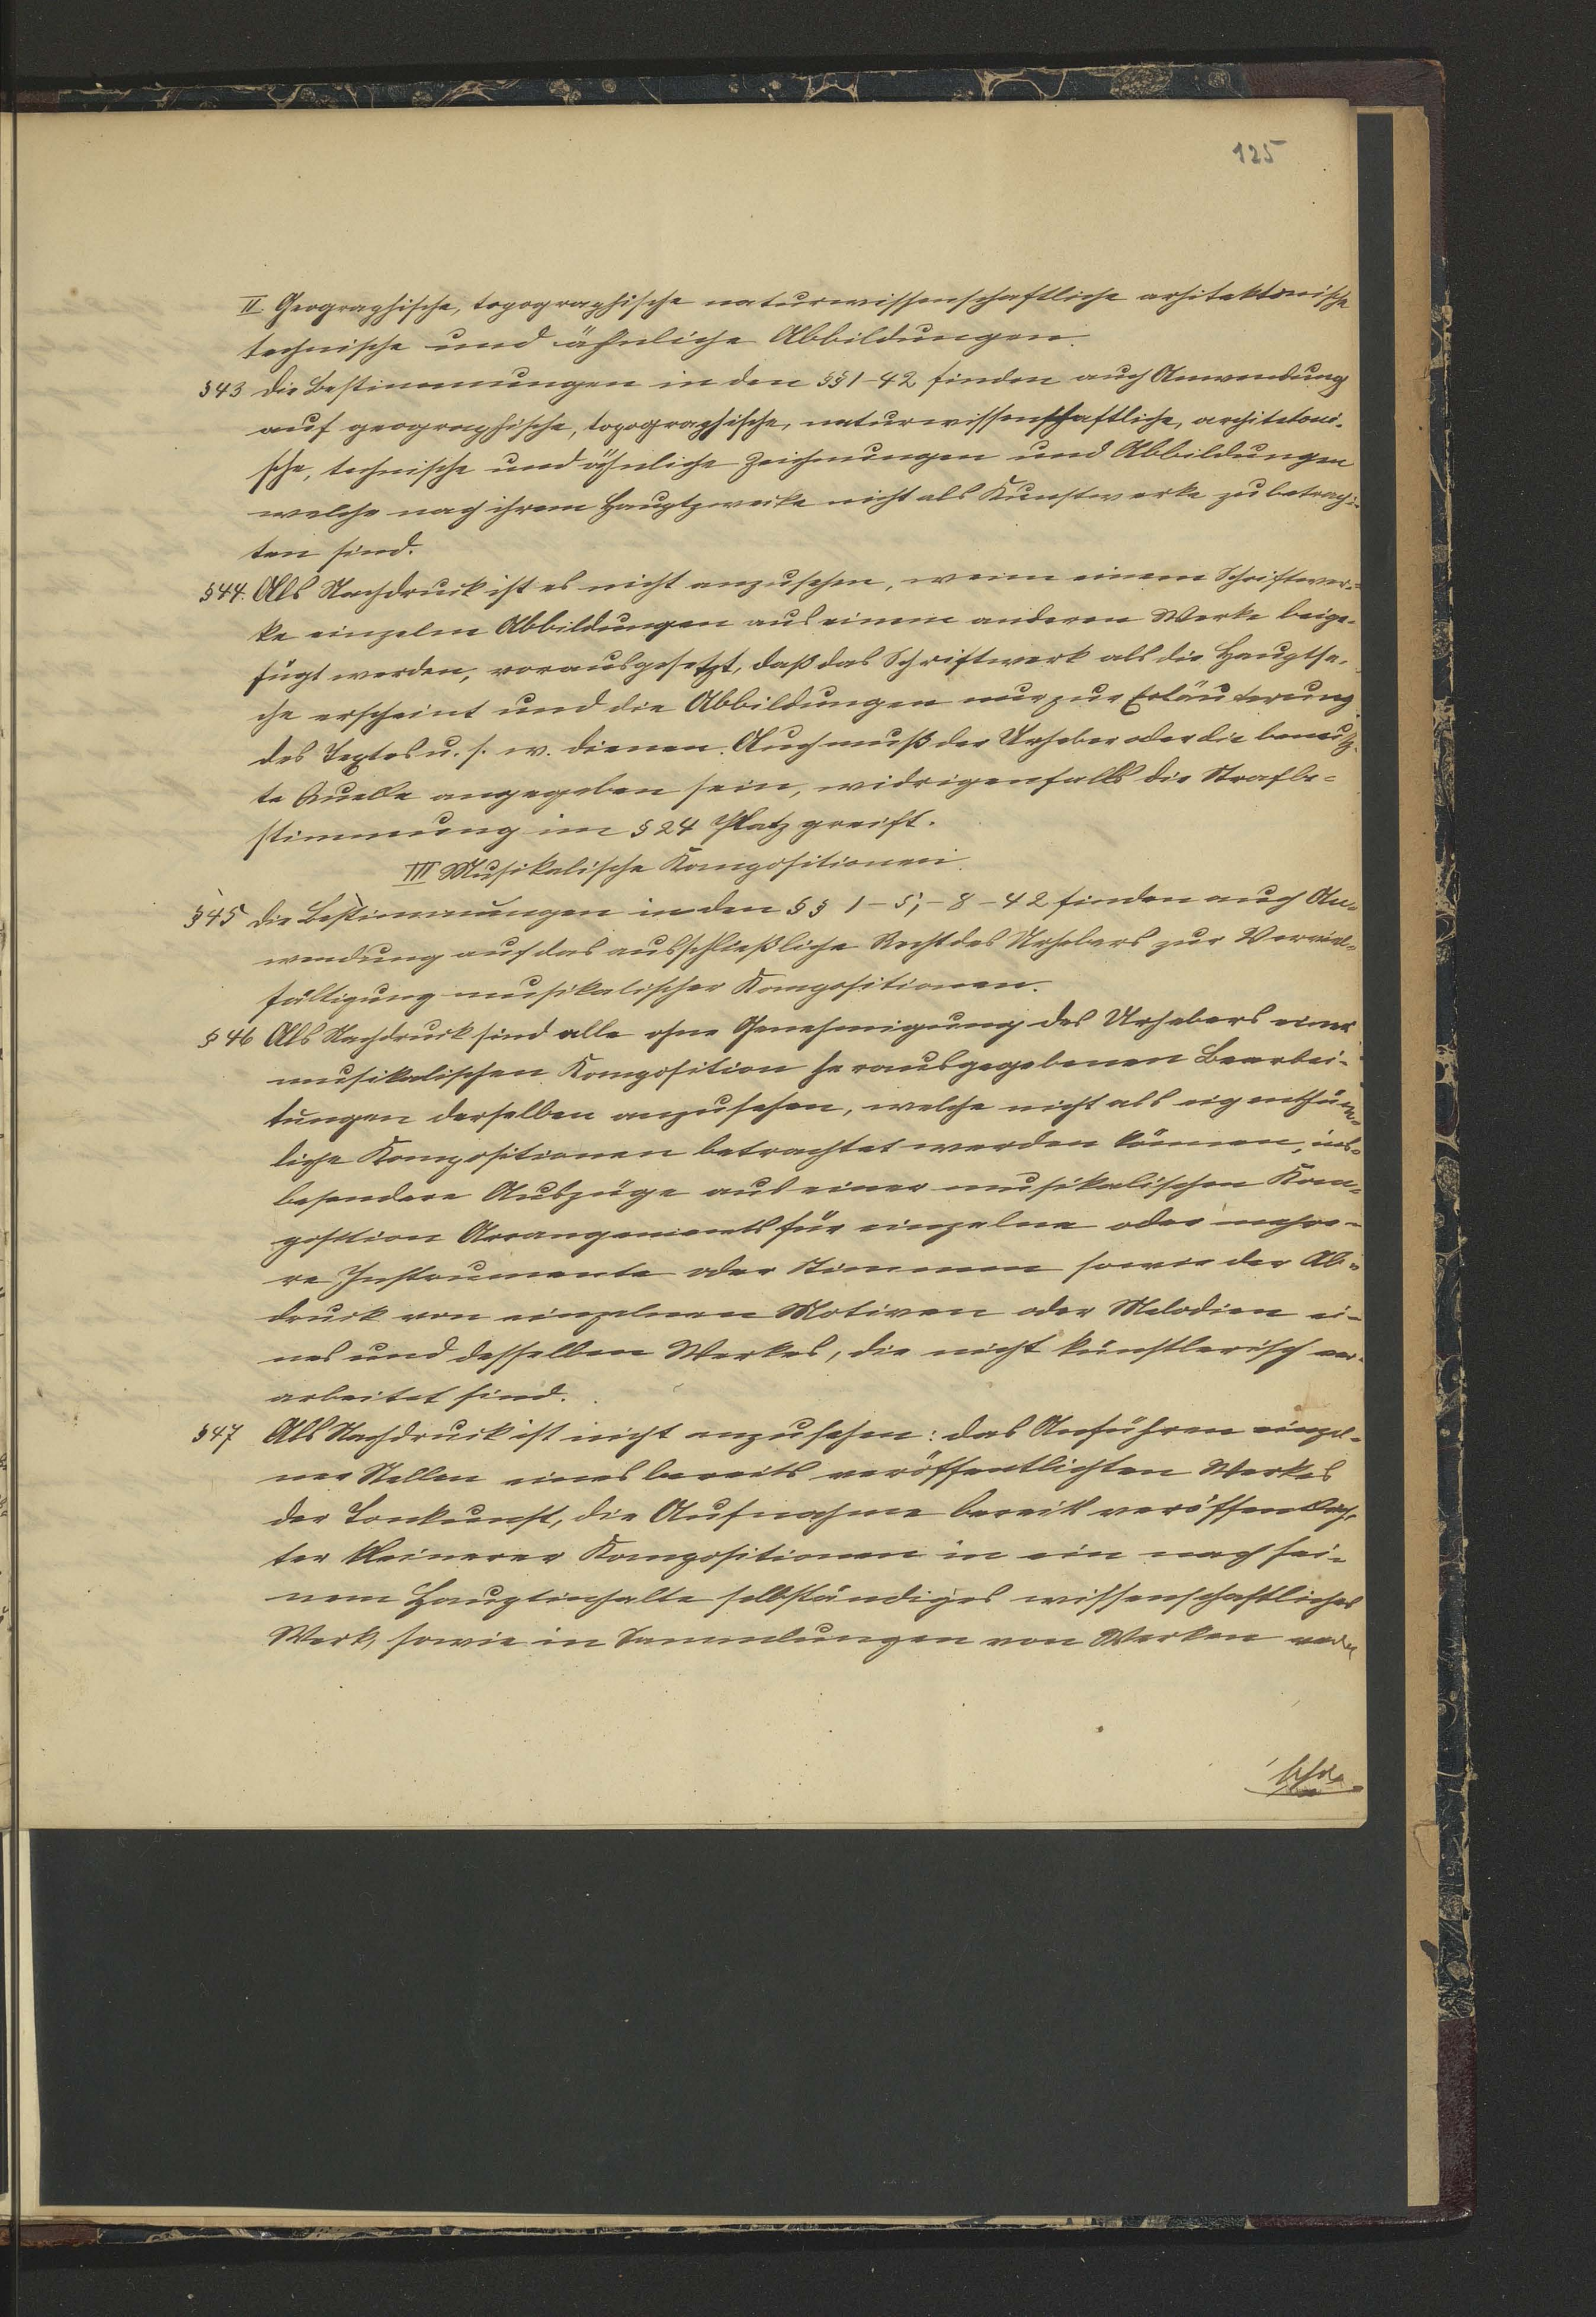 125
II. Geographische, topographische naturwissenschaftliche arhitektonische
technische und ähnliche Abbildungen.
§43 die Bestimmungen in den §§ 1-42 finden auch Anwendung
auf geographische, topographische, naturwissenschaftliche, architetoni-
sche, technische und ähnliche Zeichnungen und Abbildungen
welche nach ihrem Hauptzwecke nicht als Kunstwerke zu betrach-
ten sind.
§44. Als Nachdruck ist es nicht anzusehen, wenn einem Schriftwer-
ke einzelne Abbildungen aus einem anderen Werke beige-
fügt werden, vorausgesetzt, daß das Schriftwerk als die Hauptsa-
che erscheint und die Abbildungen nur zur Erläuterung
des Textes u. s. w. dienen. Auch muß der Urheber oder die benutz-
te Quelle angegeben sein, widrigenfalls die Strafbe-
stimmung im § 24 Platz greift.
III Musikalische Kompositionen.
§45 die Bestimmungen in den §§ 1-5; -8-42 finden auch An-
wendung auf das ausschließliche Recht des Urhebers zur Verviel-
fältigung musikalischer Kompositionen.
§46 Als Nachdruck sind alle ohne Genehmigung des Urhebers einer
musikalischen Komposition herausgegebenen Bearbei-
tungen derselben anzusehen, welche nicht als eigenthüm-
liche Kompositionen betrachtet werden können, ins-
besondere Auszüge aus einer musikalischen Kom-
position Arrangements für einzelne oder mehre-
re Instrumente oder Stimmen sowie der Ab-
druck von einzelnen Motiven oder Melodien ei-
nes und desselben Werkes, die nicht künstlerisch ver-
arbeitet sind.
§47 Als Nachdruck ist nicht anzusehen: das Anführen einzel-
ner Stellen eines bereits veröffentlichten Werkes
der Tonkunst, die Aufnahme bereits veröffentlich-
ter kleinerer Kompositionen in ein nach sei-
nem Hauptinhalte selbständiges wissenschaftliches
Werk, sowie in Sammlungen von Werken